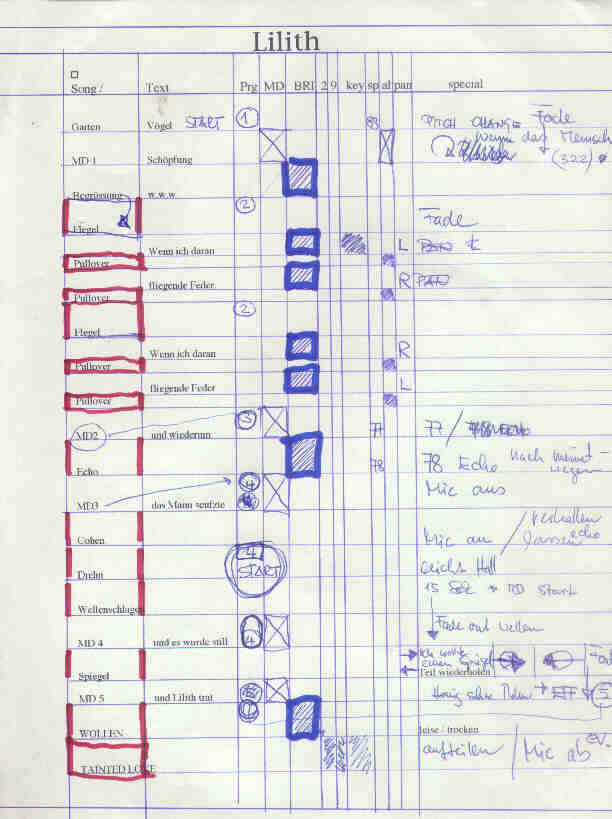 Lilith
Song / Text Prg MD BRI 2 9 key sp al pan special
Garten Vögel START 1 83 PITCH CHANGE Fade
wenn der Mensch
MD 1 Schöpfung (322)
Begrüssung w.w.w
2
Flegel Fade
Wenn ich daran L
Pullover
fliegende Feder R
Pullover
2
Flegel
Wenn ich daran R
Pullover
fliegende Feder L
Pullover
3
MD2 und wiederum 77 77 /
Echo 78 78 Echo nach
4 Mic aus
MD3 das Mann seufzte
Cohen Mic an / verhallen
lassen echo
Drehn 4 START leicht Hall
15 Sek MD Start
Wellenschlagen
Fade out Wellen
MD 4 und es wurde still 4
Ich wollte
einen Spiegel
Spiegel Teil wiederholen
MD 5 und Lilith trat 5
WOLLEN leise / trocken
TAINTED LOVE aufteilen / Mic ab ev.